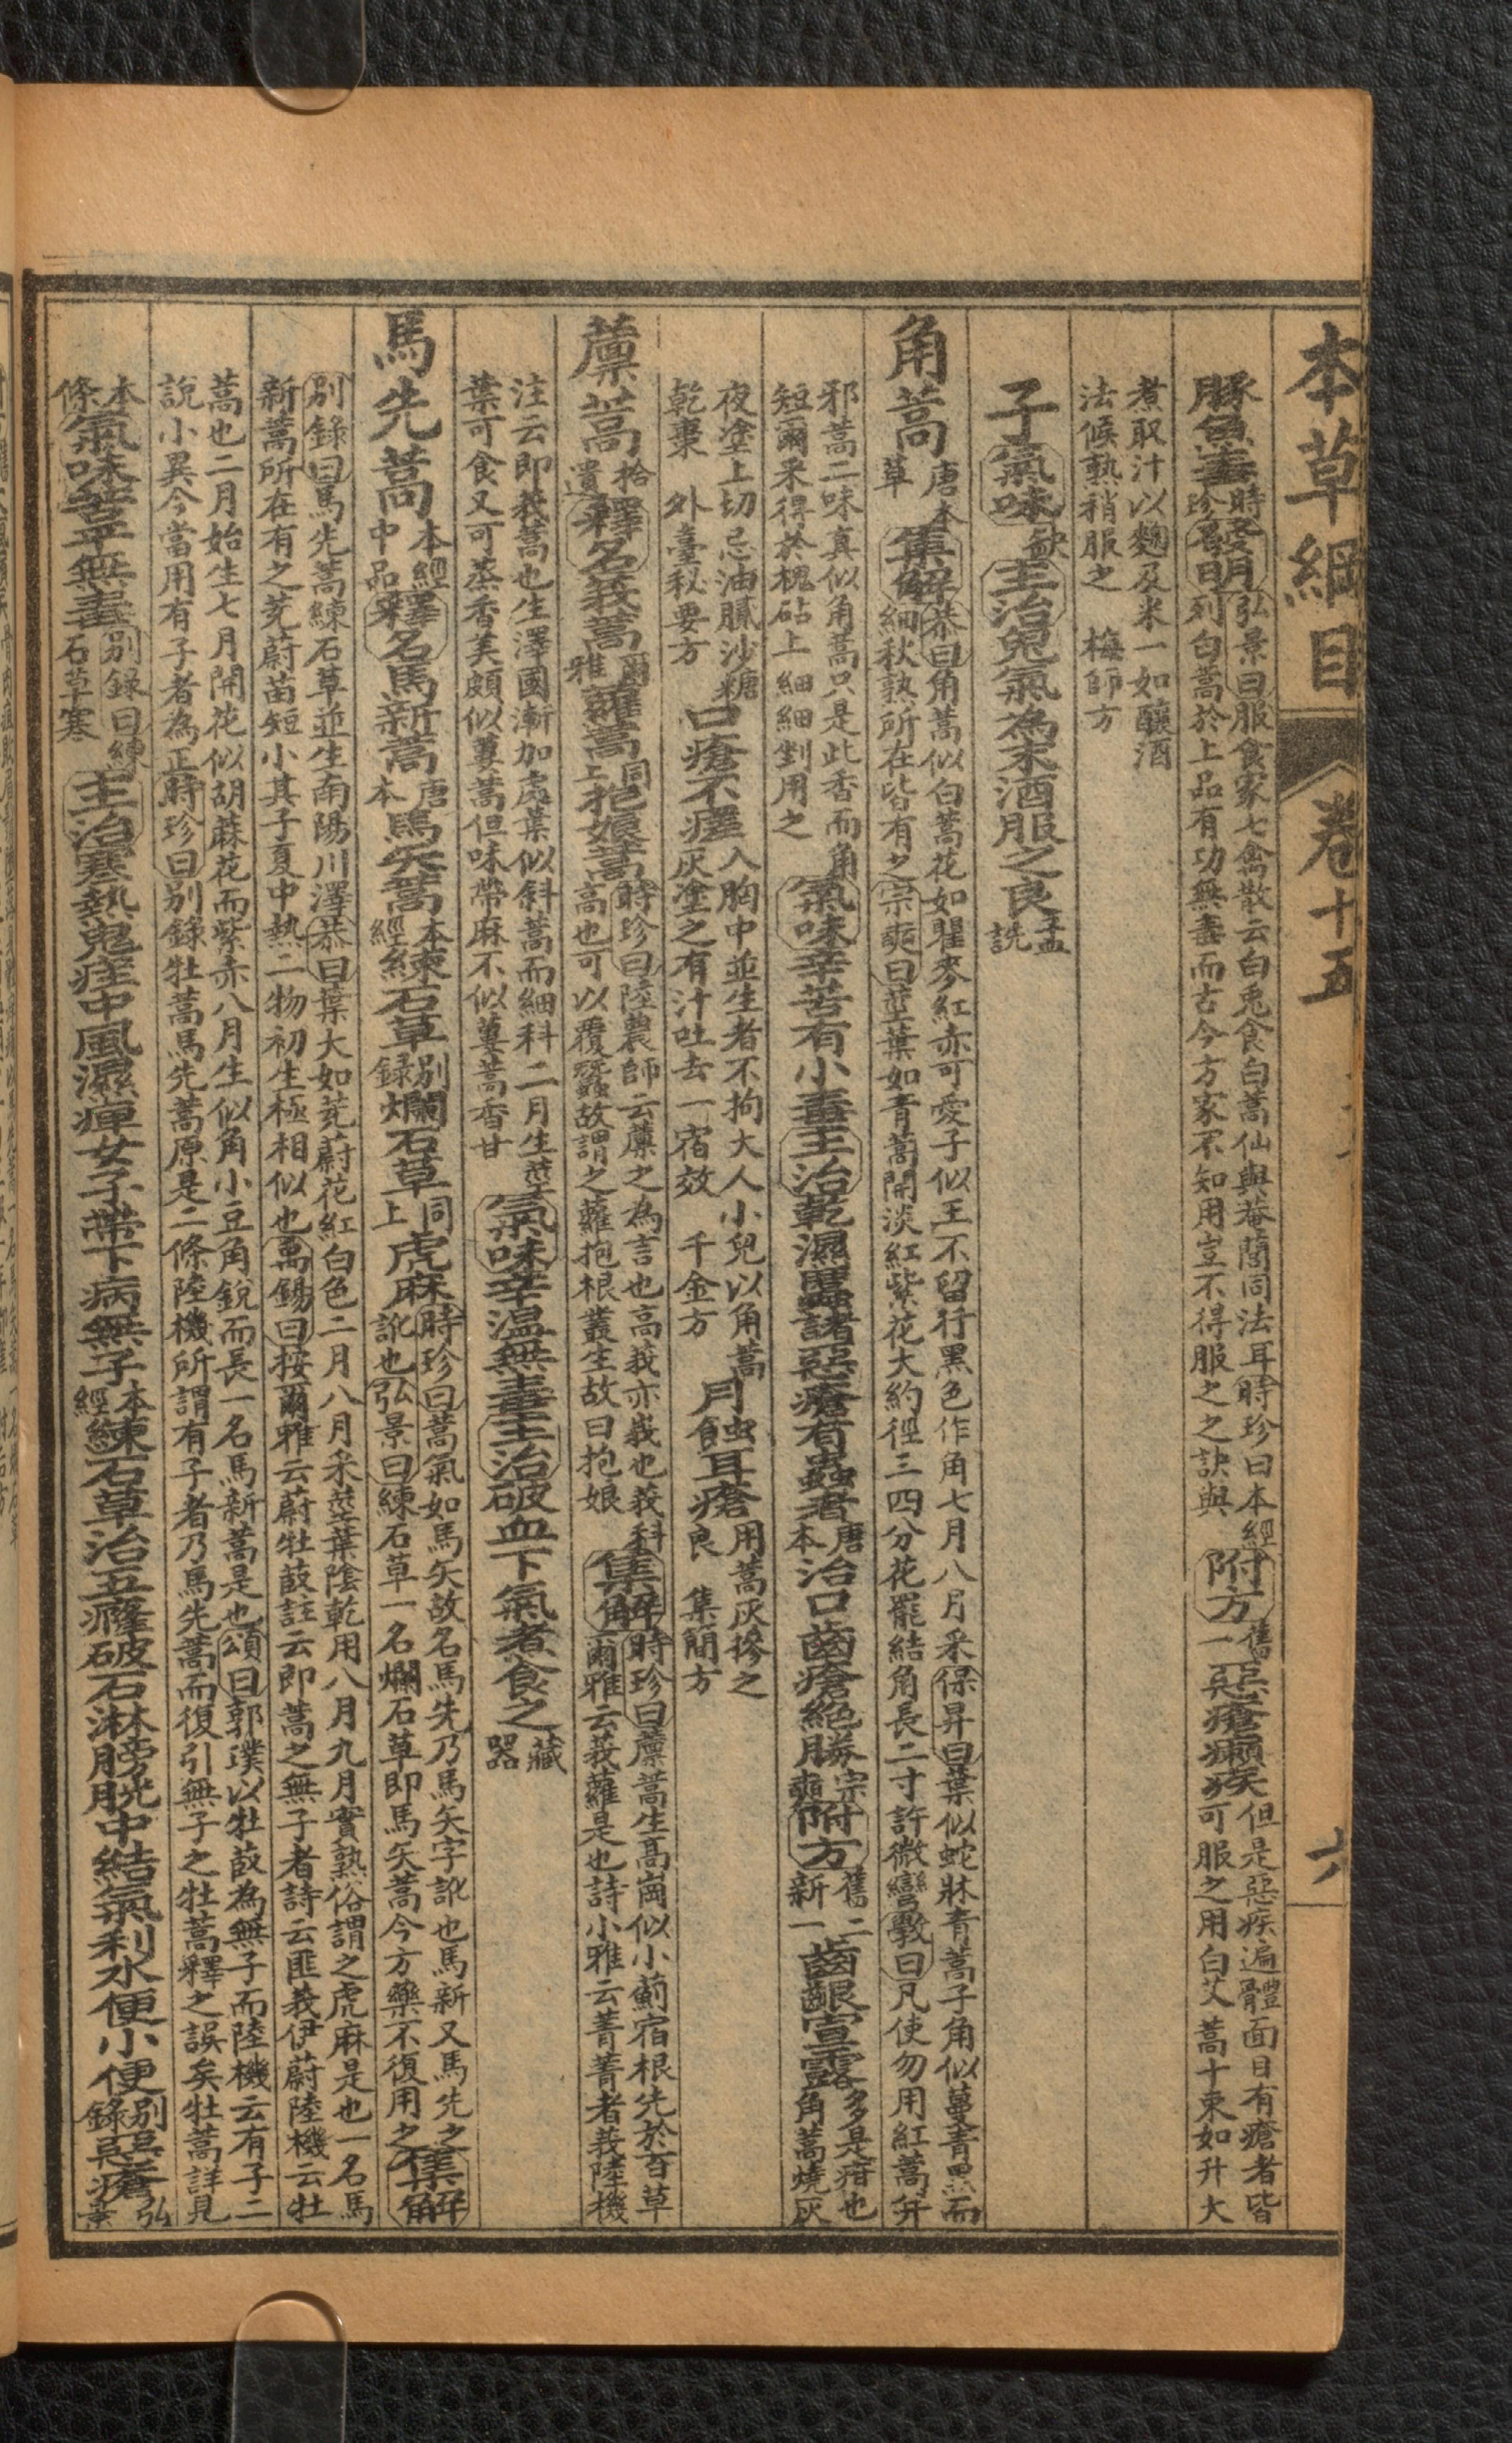 本草綱目 卷十五 六
豚魚毒時珍發明弘景曰服食家七禽散云白兎食白蒿仙與菴䕡同法耳時珍曰本經
列白蒿於上品有功無毒而古今方家不知用豈不得服之之訣與附方舊一惡瘡癩疾但是惡疾遍體面目有瘡者皆
可服之用白艾蒿十束如升大
煮取汁以麴及米一如釀酒
法候熟稍服之 梅師方
子氣味缺主治鬼氣為末酒服之良孟詵
角蒿唐本草集解恭曰角蒿似白蒿花如瞿麥紅赤可愛子似王不留行黑色作角七月八月采保昇曰葉似蛇牀青蒿子角似蔓菁黑而
細秋熟所在皆有之宗奭曰莖葉如青蒿開淡紅紫花大約徑三四分花罷結角長二寸許微彎斅曰凡使勿用紅蒿并
邪蒿二味真似角蒿只是此香而角
短爾采得於槐砧上細細剉用之氣味辛苦有小毒主治乾濕䘌諸惡瘡有蟲者唐本治口齒瘡絕勝宗奭附方舊二新一齒齦宣露多是疳也
角蒿燒灰
夜塗上切忌油膩沙糖
乾棗 外臺秘要方口瘡不瘥入胸中並生者不拘大人小兒以角蒿
灰塗之有汁吐去一宿效 千金方月蝕耳瘡用蒿灰摻之
良 集簡方
藨蒿拾遺釋名莪蒿爾雅蘿蒿同上抱娘蒿時珍曰陸農師云藨之為言也高莪亦峩也莪科
高也可以覆蠶故謂之蘿抱根叢生故曰抱娘集解時珍曰藨蒿生高崗似小薊宿根先於百草
爾雅云莪蘿是也詩小雅云菁菁者莪陸機
注云即莪蒿也生澤國漸加處葉似斜蒿而細科二月生莖
葉可食又可蒸香美頗似蔞蒿但味帶麻不似蔞蒿香甘氣味辛溫無毒主治破血下氣煮食之藏器
馬先蒿本經中品釋名馬新蒿唐本馬矢蒿本經練石草別録爛石草同上虎麻時珍曰蒿氣如馬矢故名馬先乃馬矢字訛也馬新又馬先之
訛也弘景曰練石草一名爛石草即馬矢蒿今方藥不復用之集解
別錄曰馬先蒿練石草並生南陽川澤恭曰葉大如茺蔚花紅白色二月八月采莖葉陰乾用八月九月實熟俗謂之虎麻是也一名馬
新蒿所在有之茺蔚苗短小其子夏中熟二物初生極相似也禹錫曰按爾雅云蔚牡菣註云即蒿之無子者詩云匪莪伊蔚陸機云牡
蒿也二月始生七月開花似胡蔴花而紫赤八月生似角小豆角銳而長一名馬新蒿是也頌曰郭璞以牡菣為無子而陸機云有子二
說小異今當用有子者為正時珍曰別錄牡蒿馬先蒿原是二條陸機所謂有子者乃馬先蒿而復引無子之牡蒿釋之誤矣牡蒿詳見
本條氣味苦平無毒別錄曰練石草寒主治寒熱鬼疰中風濕痺女子帶下病無子本經練石草治五癃破石淋膀胱中結氣利水便小便別錄惡瘡弘景